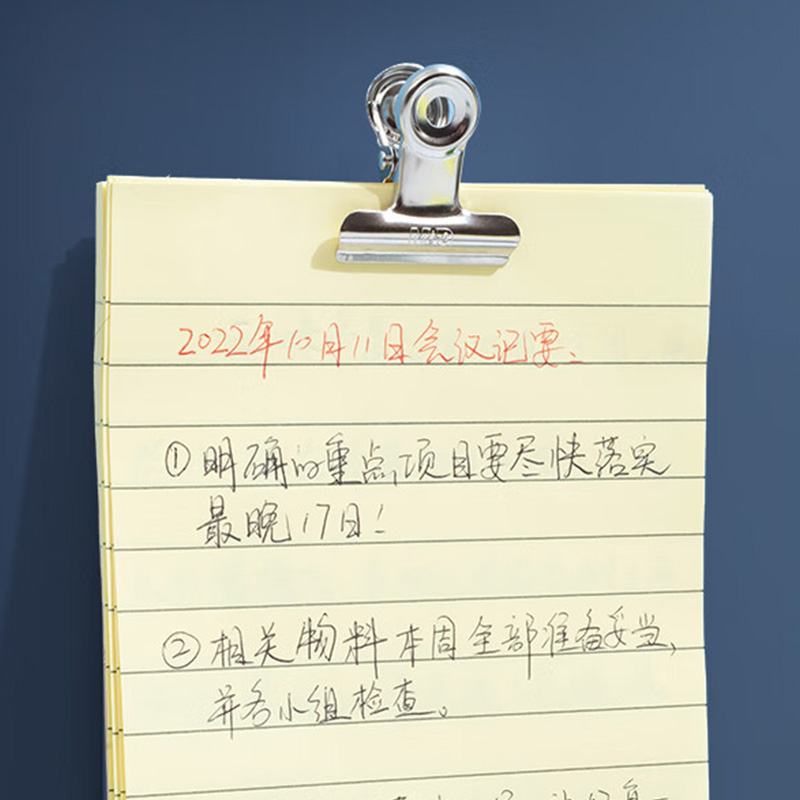 2022年10月11日会议记要、
①明确的重点项目要尽快落实
最晚17日！
②相关物料本周全部准备妥当,
并各小组检查。